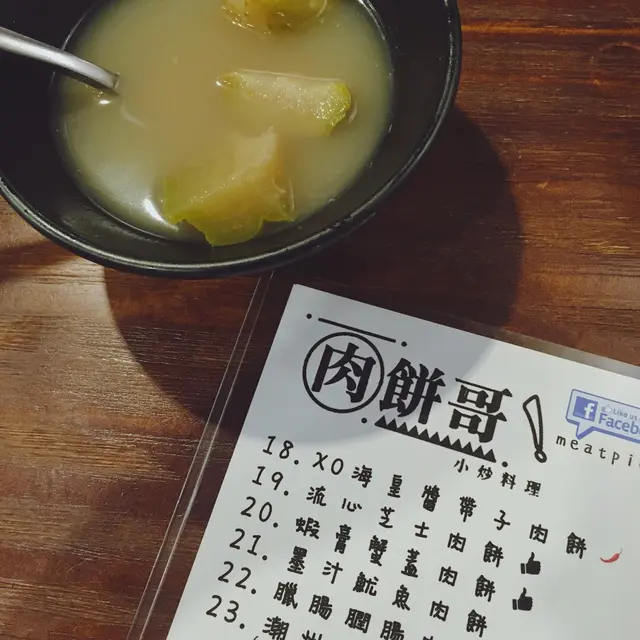 肉餅哥!
小炒料理
Like us on
Facebo
meatpi
18. XO海皇醬帶子肉餅
19. 流心芝士肉餅
20. 蝦膏蟹蓋肉餅
21. 墨汁魷魚肉餅
22. 臘腸膶腸
23. 潮州